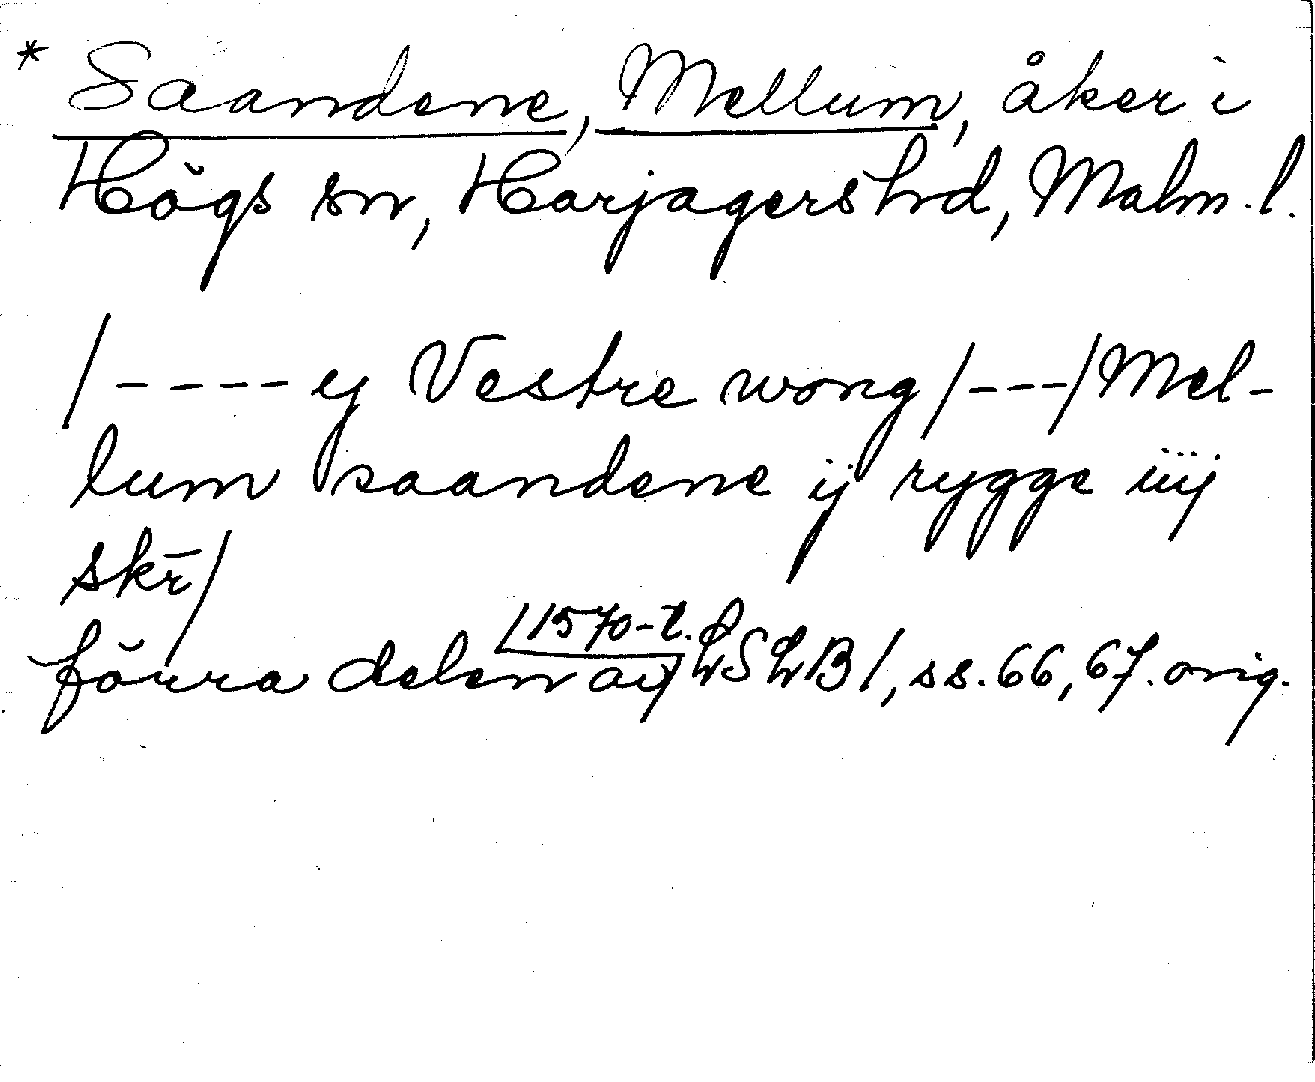 * Saandene, Mellum, åker i
Högs sn, Harjagers hd, Malm. l.
/---- ij Vestre wong/---/Mel-
lum saandene ij rygge iiij
skr̄/
/1570-t.
förra delen av LSLB/, ss. 66, 67. orig.